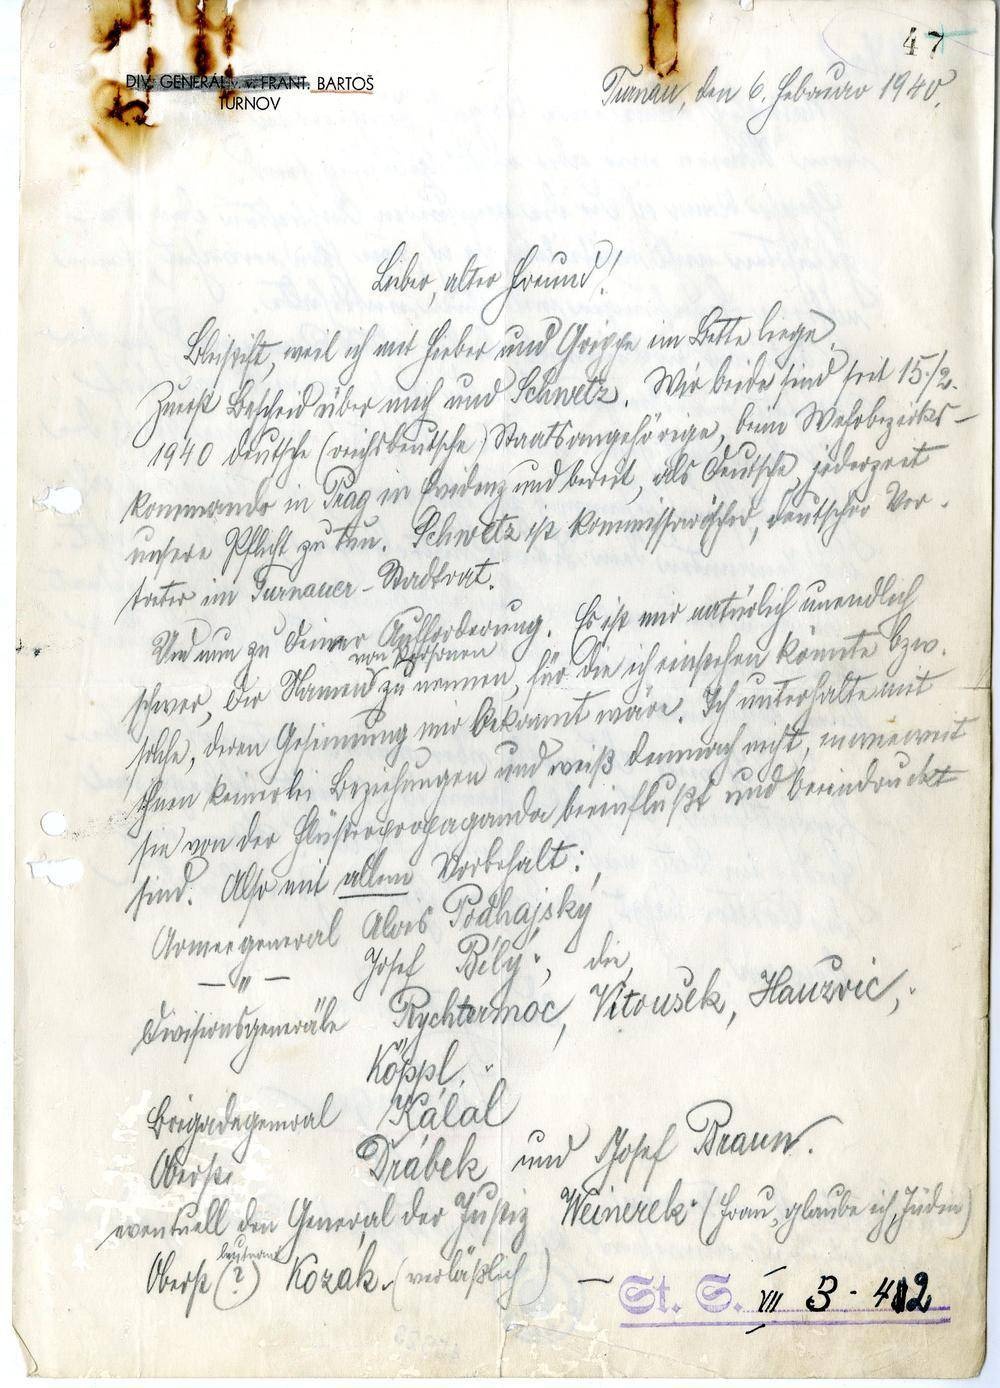 47
DIV. GENERÁL v. v. FRANT. BARTOŠ
TURNOV
Turnau, den 6. Februar 1940.
Lieber, alter Freund!
Bleistift, weil ich mit Fieber und Grippe im Bette liege.
Zuerst Bescheid über mich und Schwetz. Wir beide sind seit 15./2.
1940 deutsche (reichsdeutsche) Staatsangehörige, beim Wehrbezirks-
kommando in Prag in Evidenz und bereit, als Deutsche, jederzeit
unsere Pflicht zu tun. Schwetz ist kommissarischer, deutscher Ver-
treter im Turnauer-Stadtrat.
Und nun zu Deiner Aufforderung. Es ist mir natürlich unendlich
schwer, Dir Namen von Personen zu nennen, für die ich einstehen könnte bzw.
solche, deren Gesinnung mir bekannt wäre. Ich unterhalte mit
ihnen keinerlei Beziehungen und weiß demnach nicht, inwieweit
sie von der Flüsterpropaganda beeinflußt und beeindruckt
sind. Also mit allem Vorbehalt:
Armeegeneral Alois Podhajský
—„— Josef Bílý, die
Divisionsgeneräle Rychtrmoc, Vitoušek, Hauzvic,
Köppl,
Brigadegeneral Kálal
Oberste Drábek und Josef Braun.
eventuell den General der Justiz Weinerek (Frau, glaube ich, Jüdin)
Oberstleutnant (?) Kozák. (verläßlich) —
St. S. VII B - 412